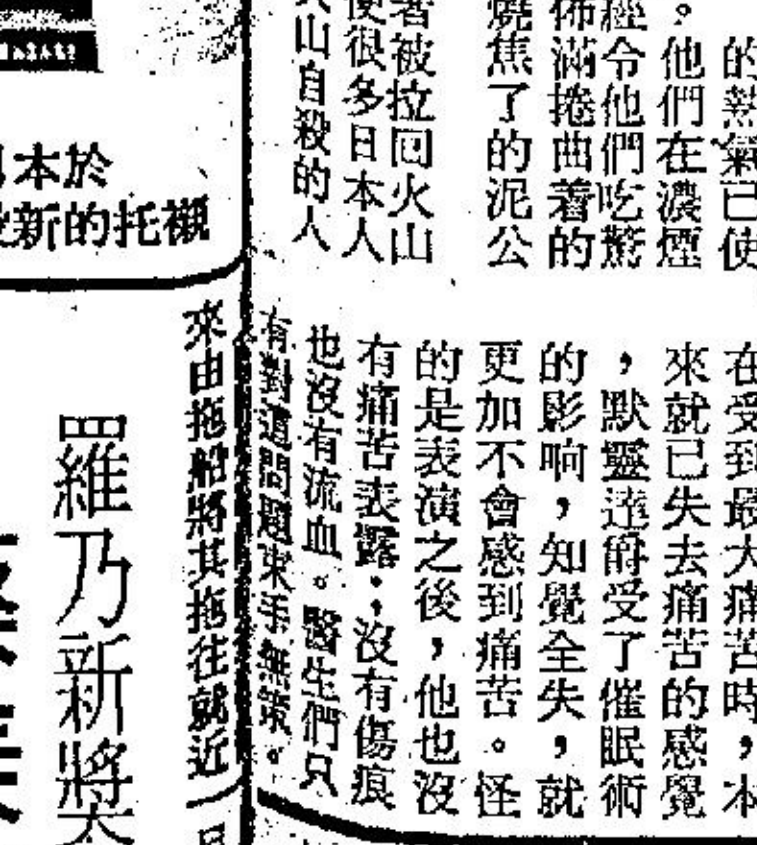 的熱氣已使
。他們在濃煙
經令他們吃驚
佈滿捲曲着的
燒焦了的泥公
著被拉回火山
便很多日本人
火山自殺的人
在受到最大痛苦時，本
來就已失去痛苦的感覺
，默靈達爵受了催眠術
的影响，知覺全失，就
更加不會感到痛苦。怪
的是表演之後，他也沒
有痛苦表露；沒有傷痕
也沒有流血。醫生們只
有對這問題束手無策。
本於
新的托襯
來由拖船將其拖往就近
羅乃新將